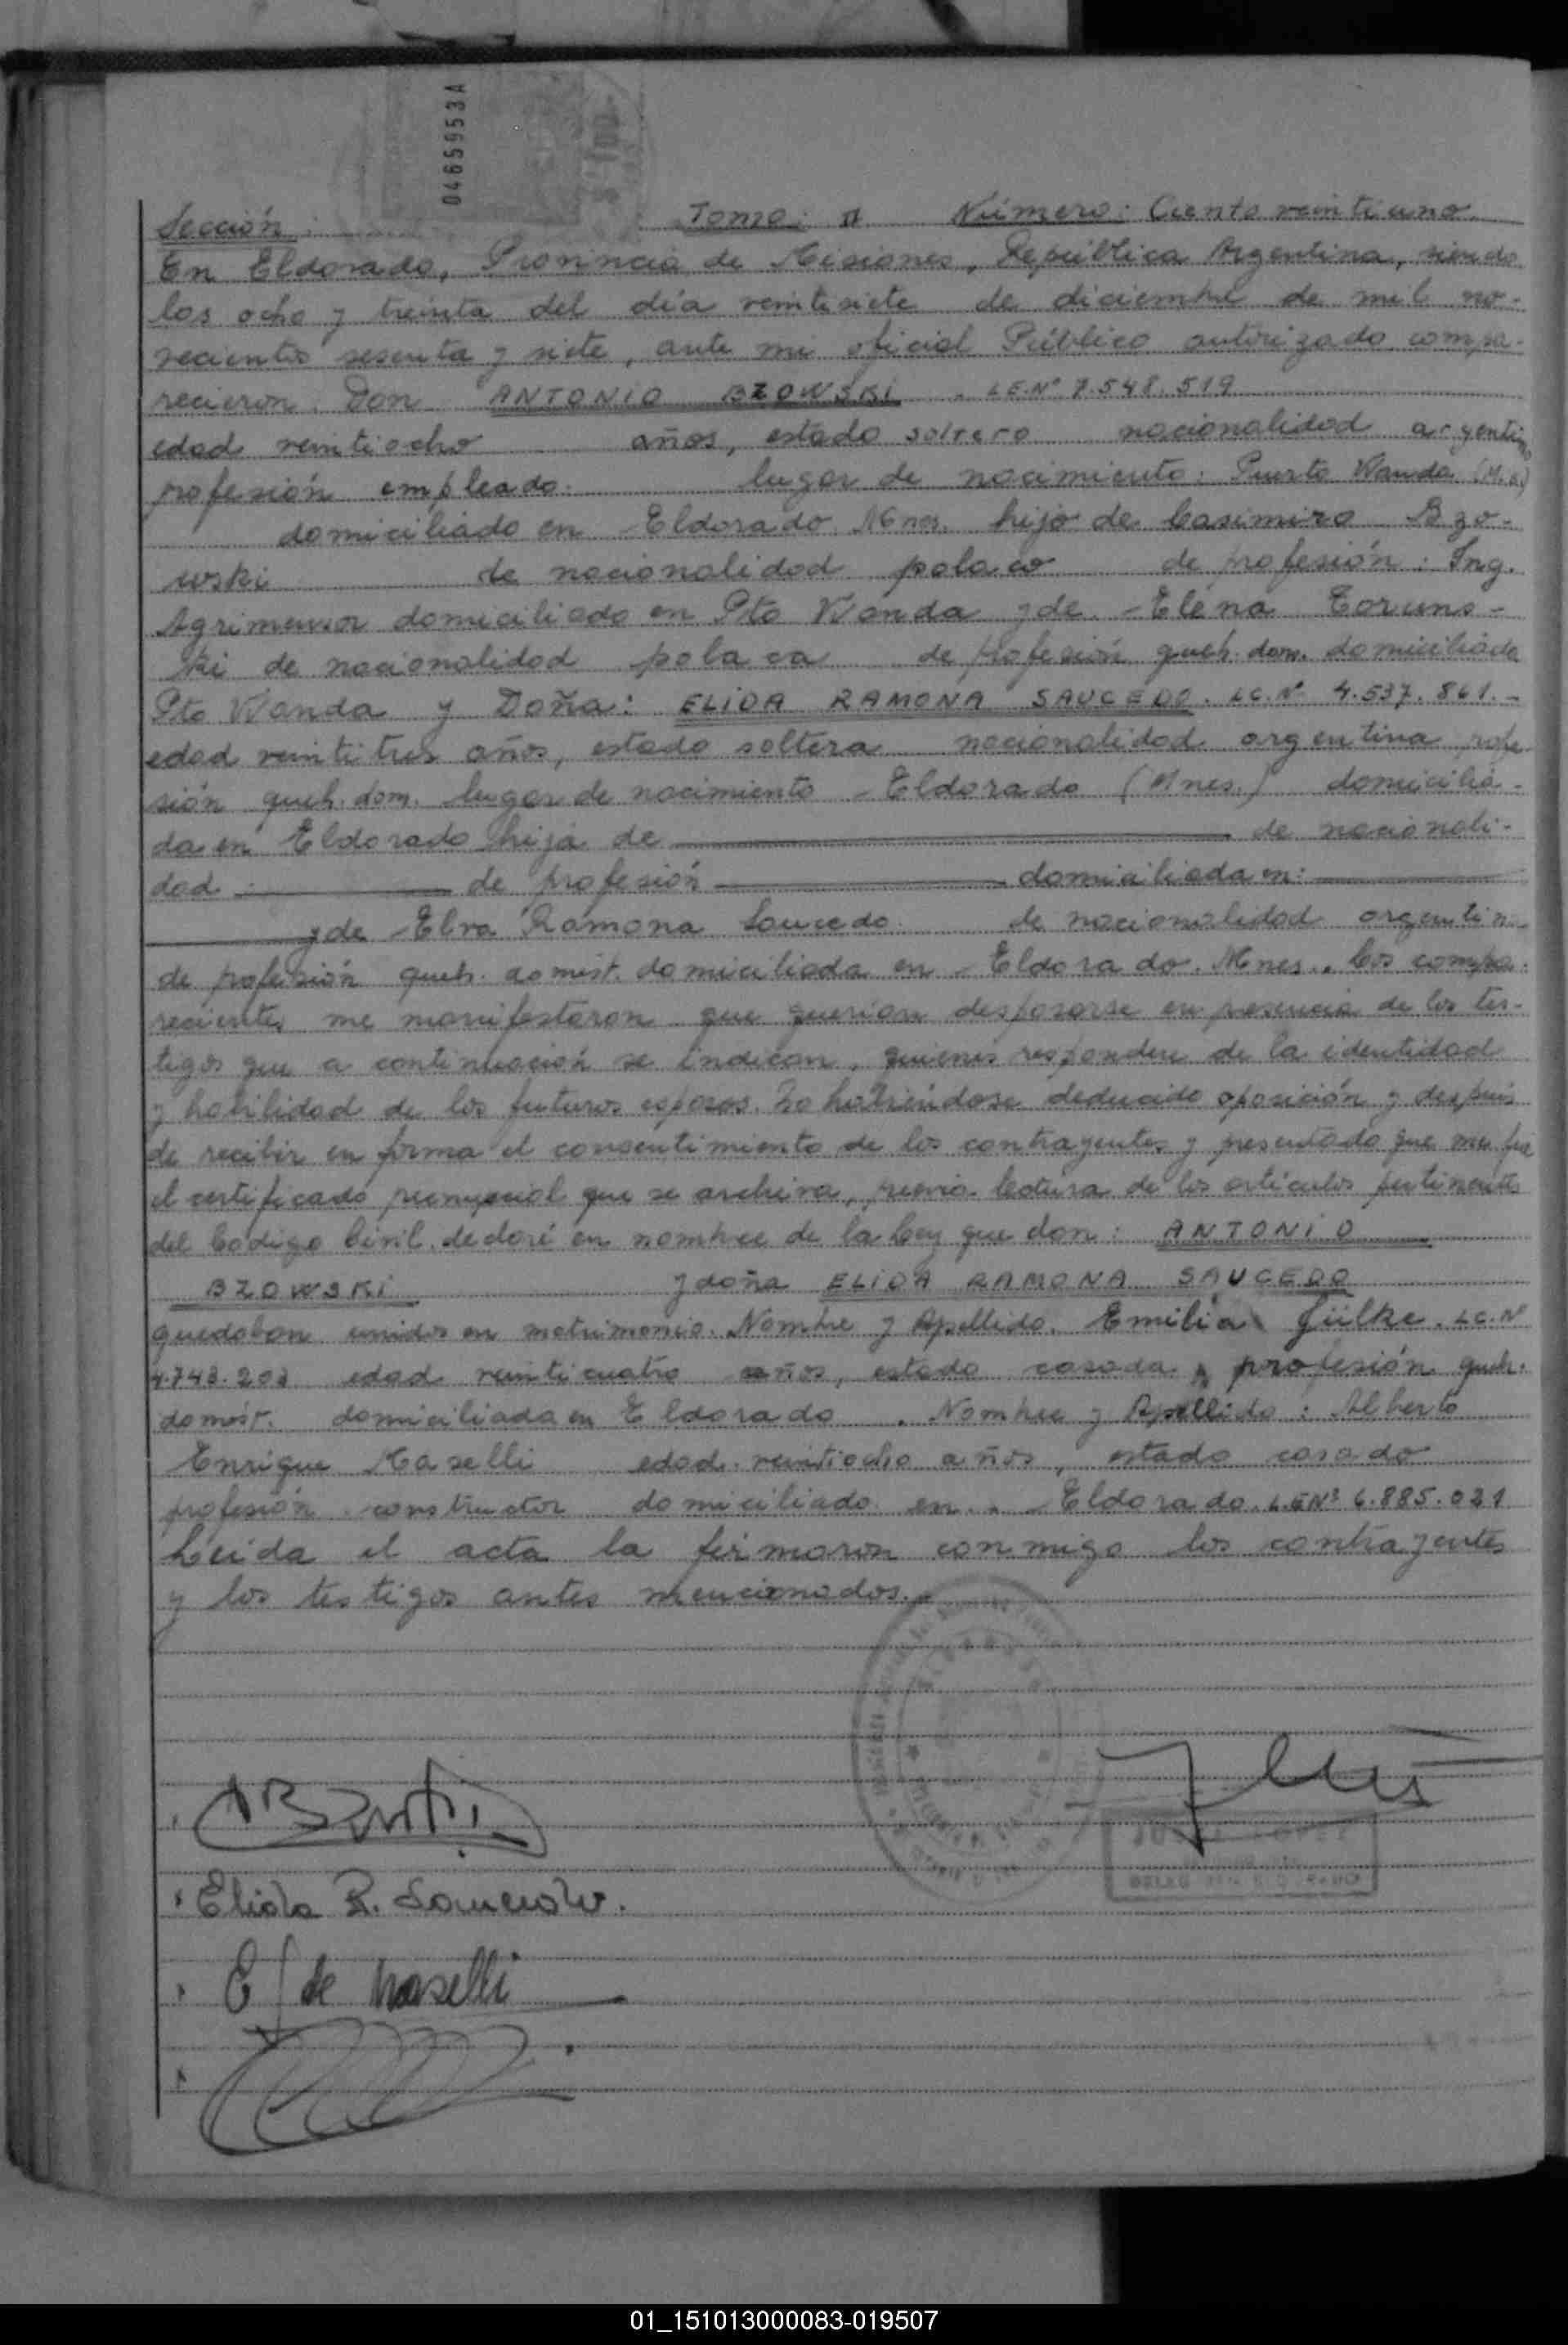 04659953A
Sección: Tomo: II Número: Ciento veintiuno.
En Eldorado, Provincia de Misiones, República Argentina, siendo
las ocho y treinta del día veintisiete de diciembre de mil no-
vecientos sesenta y siete, ante mi oficial Público autorizado compa-
recieron. Don ANTONIO BZOWSKI. L.E.Nº 7.548.519
edad veintiocho años, estado soltero nacionalidad argentino
profesión empleado. lugar de nacimiento: Puerto Wanda
domiciliado en Eldorado. Mnes. hijo de Casimiro Bzo-
wski de nacionalidad polaco de profesión: Ing.
Agrimensor domiciliado en Pto Wanda y de Elena Toruns-
ki de nacionalidad polaca de profesión queh. dom. domiciliada
Pto Wanda y Doña: ELIDA RAMONA SAUCEDO. L.C.Nº 4.537.861.-
edad veintitres años, estado soltera nacionalidad argentina profe-
sión queh. dom. lugar de nacimiento Eldorado (Mnes.) domicilia-
da en Eldorado hija de de nacionali-
dad de profesión domiciliada en:
y de Elva Ramona Saucedo. de nacionalidad argentina
de profesión queh. domést. domiciliada en Eldorado. Mnes.. Los compa-
recientes me manifestaron que querian desposarse en presencia de los tes-
tigos que a continuación se indican, quienes responden de la identidad
y habilidad de los futuros esposos. No habiéndose deducido oposición y después
de recibir en forma el consentimiento de los contrayentes y presentado que me fue
el certificado prenupcial que se archiva, previa lectura de los artículos pertinentes
del Codigo Civil, declaré en nombre de la Ley que don: ANTONIO
BZOWSKI y doña ELIDA RAMONA SAUCEDO
quedaban unidos en matrimonio. Nombre y Apellido. Emilia Jülke. L.C.Nº
4.743.203 edad veinticuatro años, estado casada, profesión queh.
domést. domiciliada en Eldorado. Nombre y Apellido: Alberto
Enrique Maselli edad veintiocho años, estado casado
profesión constructor domiciliado en. Eldorado. L.E Nº 6.885.021
Leída el acta la firmaron conmigo los contrayentes
y los testigos antes mencionados.
Elida R. Saucedo.
E J de Maselli
01_151013000083-019507